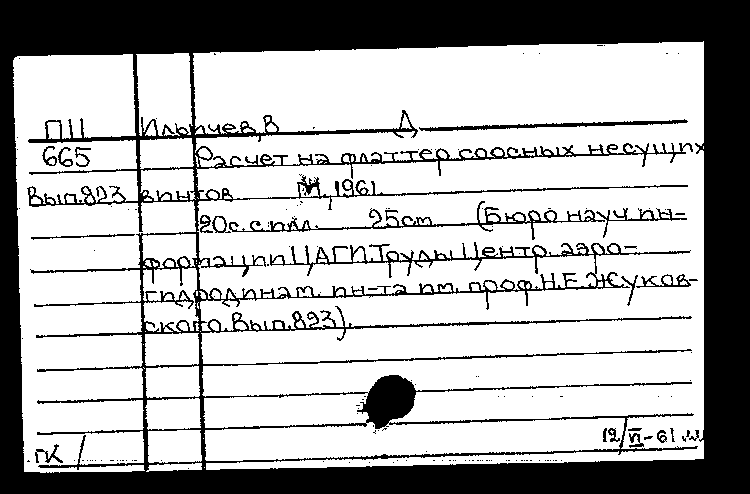 П11 Ильичев, В Д
665 Расчет на флаттер соосных несущих
Вып.823 винтов М., 1961.
20с. с илл. 25см (Бюро науч. ин-
формации ЦАГИ. Труды Центр. аэро-
гидродинам. ин-та им. проф. Н.Е. Жуков-
ского. Вып.823).
12/VI-61
ГК /